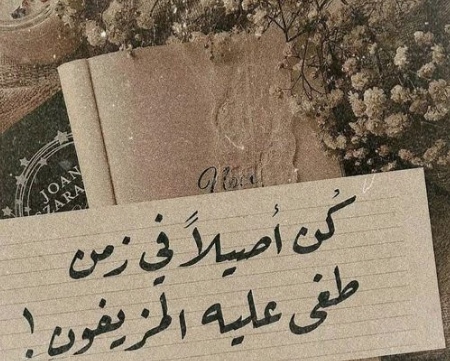 JOAN
ZARA
كُن أصيلاً في زمن
طغى عليه المزيفون !